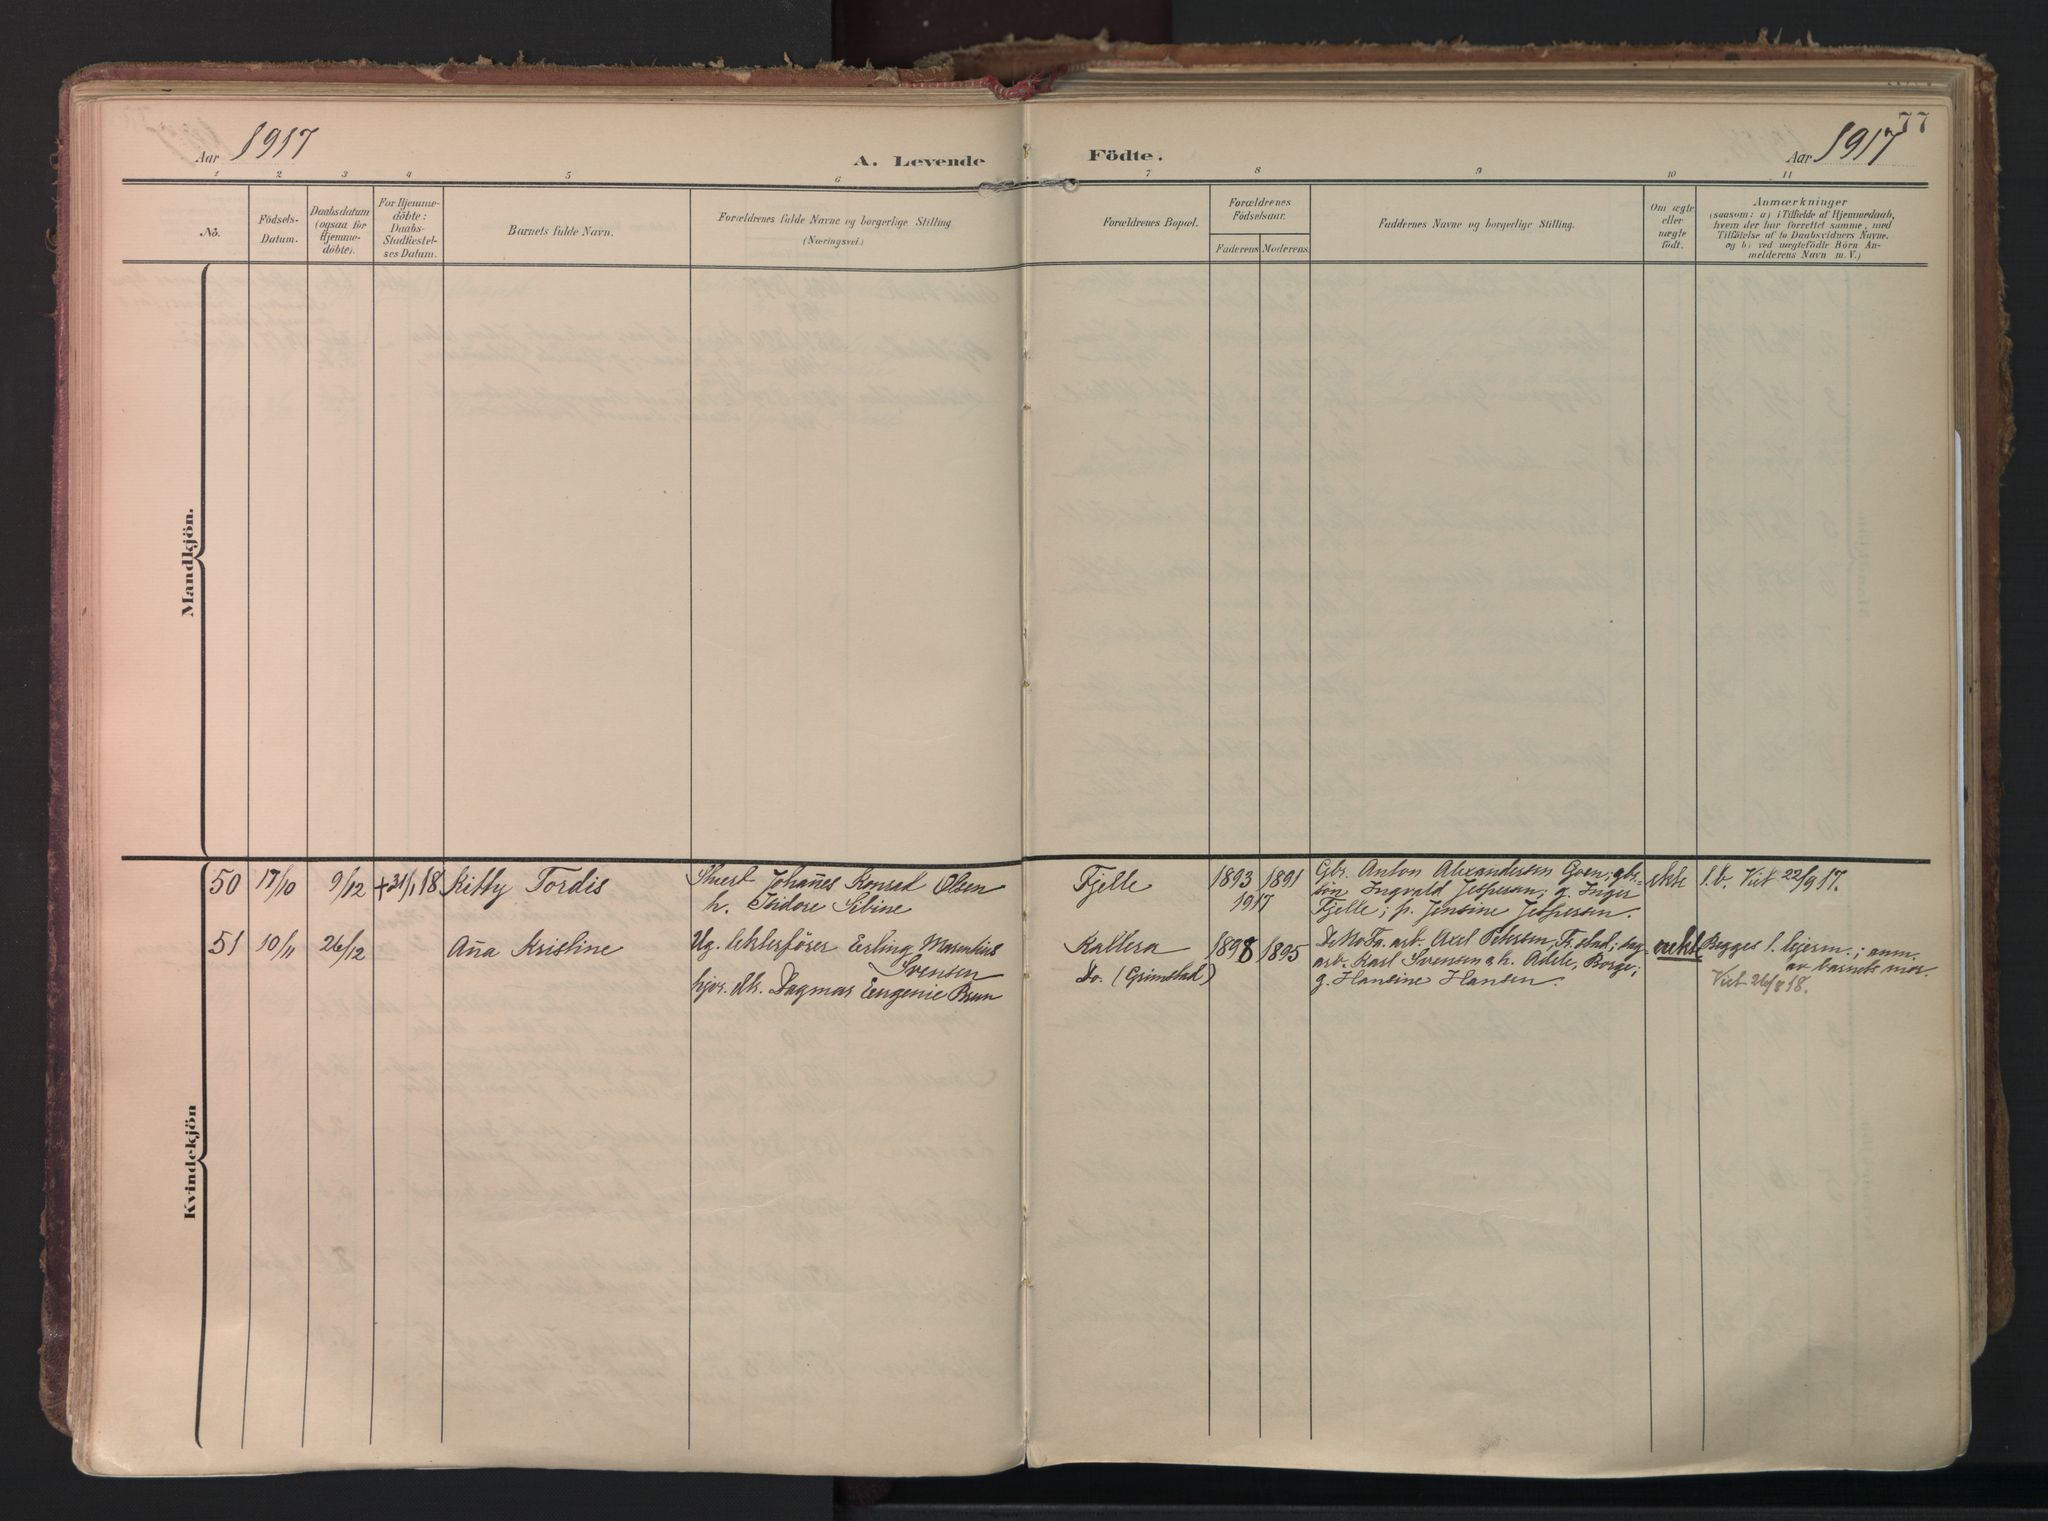 77
Aar 1917
A. Levende Födte.
Aar 1917
1 2 3 4 5 6 7 8 9 10 11
No.
Födsels-Datum.
Daabsdatum (ogsaa for Hjemmedöbte).
For Hjemmedöbte: Daabs-Stadfæstelses Datum.
Barnets fulde Navn.
Forældrenes fulde Navne og borgerlige Stilling
(Næringsvei.)
Forældrenes Bopæl.
Forældrenes Födselsaar.
Faderens. Moderens.
Faddernes Navne og borgerlige Stilling.
Om ægte eller uægte födt.
Anmærkninger
(saasom: a) i Tilfælde af Hjemmedaab,
hvem der har forrettet samme, med
Tilföielse af to Daabsvidners Navne.
og b) ved uægtefödte Börn An-
melderens Navn m. V.)
Mandkjön.
50 17/10 9/12 +31/1 18 Kitty Tordis
Johañes Konrad Olsen
h. Isidore Sibine
Fjelle
1893 1891
1917
Gbr. Anton Alexandersen Goen; gbr.-
søn Ingvald Jespersen; g. Inger
Fjelle; p. Jensine Jespersen.
ekte
l.b. Vict 22/9 17.
51 10/11 26/12 Aña Kristine
Ug. lekterfører Erling Marentius
Svensen
hjv. Dagmar Eugenie Brun
Kallera
Do. (Grimstad)
1898 1895
arb. Axel Petersen, Fr.stad; dag-
arb. Karl Svensen & h. Adele, Borge;
g. Hansine Hansen.
uekte
Begges l. lejerm.; anm.
av barnets mor.
Vict 26/8 18.
Kvindekjön